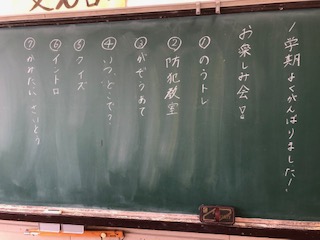 1学期よくがんばりました!
お楽しみ会!!
①のうトレ
②防犯教室
③がぞうあて
④いつ、どこで?
⑤クイズ
⑥イントロ
⑦かめたに さいとう